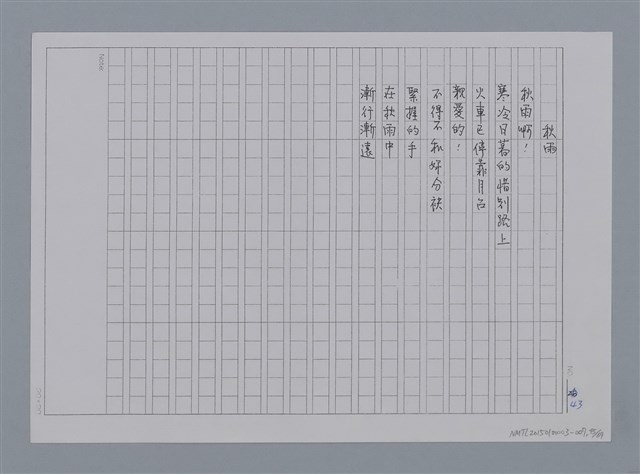 秋雨
秋雨啊！
寒冷日暮的惜別路上
火車已停靠月台
親愛的！
不得不和妳分袂
緊握的手
在秋雨中
漸行漸遠
Note:
43